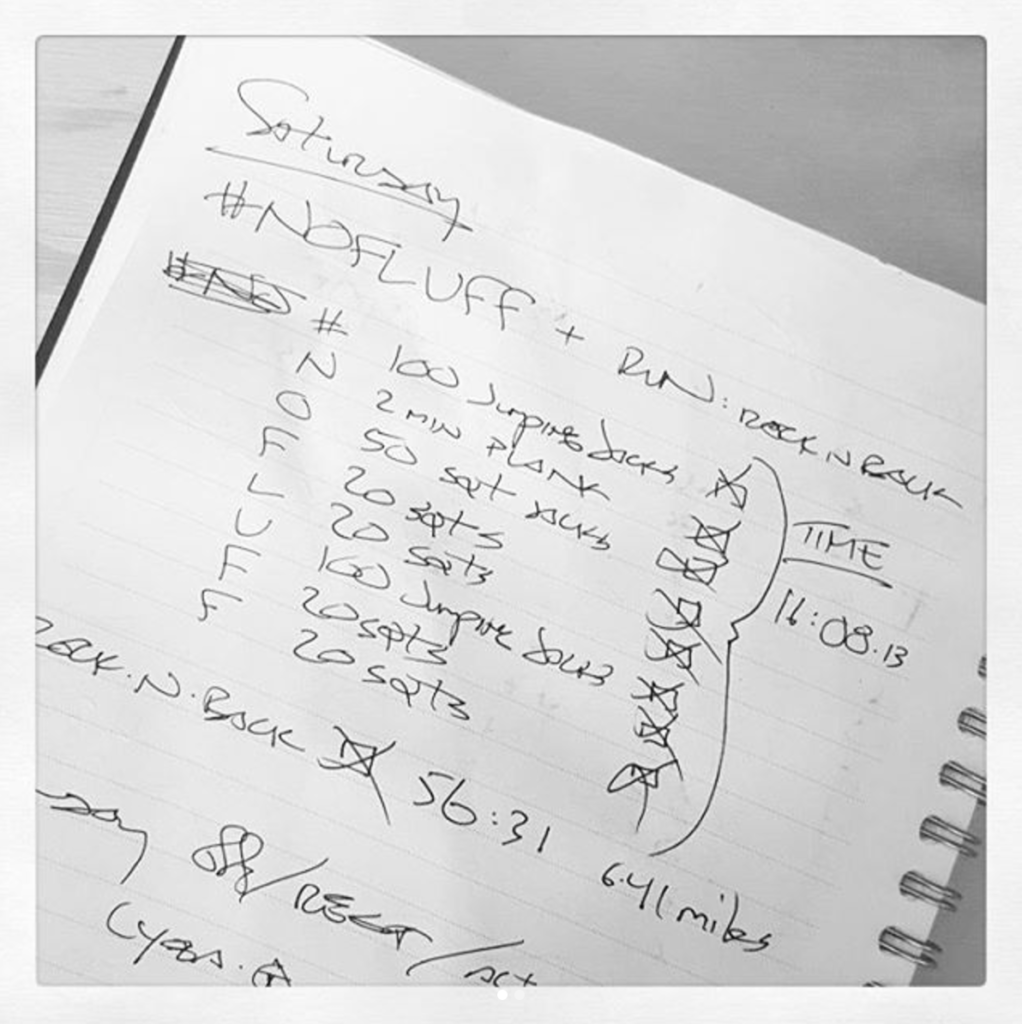 Saturday
#NOFLUFF + RUN: NECK N BACK
# 100 Jumping Jacks
N 2 MIN PLANK
O 50 sqt JACKS
F 20 sqts
L 20 sqts
U 100 Jumping Jacks
F 20 sqts
F 20 sqts
TIME
16:08.13
NECK.N.BACK 56:31 6.41 miles
off/RESET/